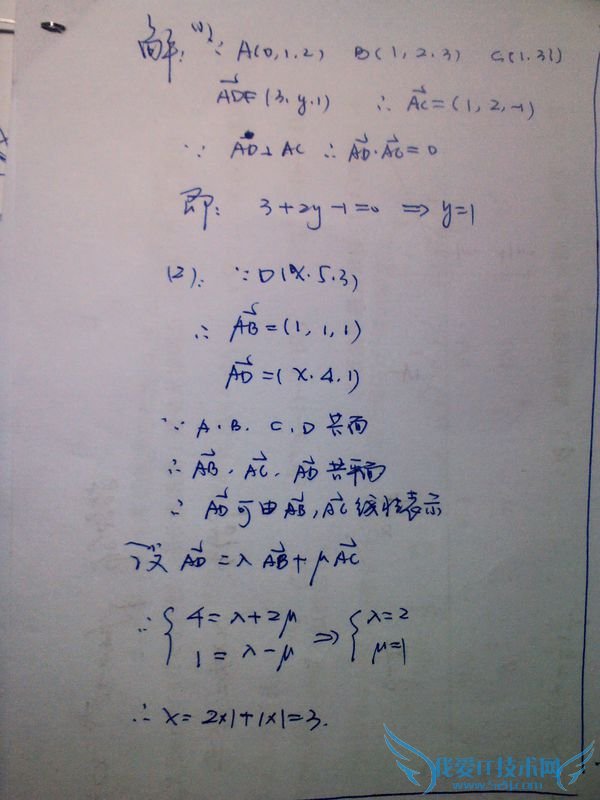 解：(1) ∵ A(0,1,2) B(1,2,3) C(1,3,1)
AD=(3,y,1) ∴ AC=(1,2,-1)
∵ AD⊥AC ∴ AD·AC=0
即： 3+2y-1=0 ⇒ y=1
(2)： ∵ D(x,5,3)
∴ AB=(1,1,1)
AD=(x,4,1)
∵ A、B、C、D 共面
∴ AB、AC、AD 共平面
∴ AD可由AB,AC线性表示
设 AD=λAB+μAC
∴ { 4=λ+2μ
1=λ-μ ⇒ { λ=2
μ=1
∴ x=2×1+1×1=3.
我爱IT技术网